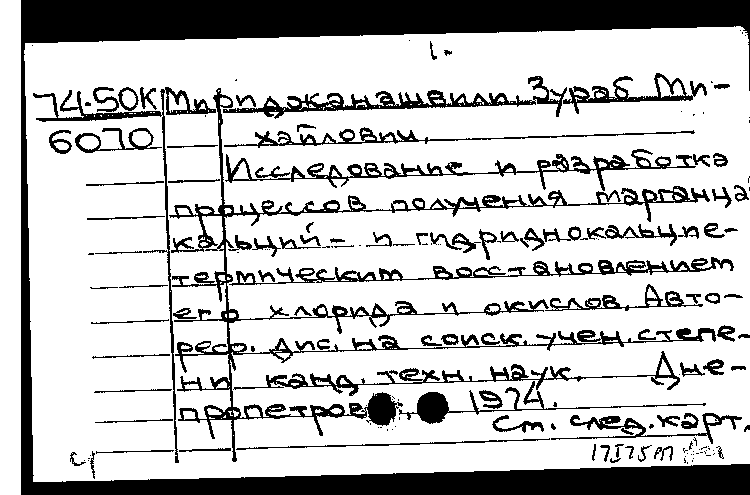 1.
74-50К Мириджанашвили, Зураб Ми-
6070 хайлович.
Исследование и разработка
процессов получения марганца
кальций- и гидриднокальцие-
термическим восстановлением
его хлорида и окислов. Авто-
реф. дис. на соиск. учен. степе-
ни канд. техн. наук. Дне-
пропетров 1974.
см. след. карт.
17 I 75